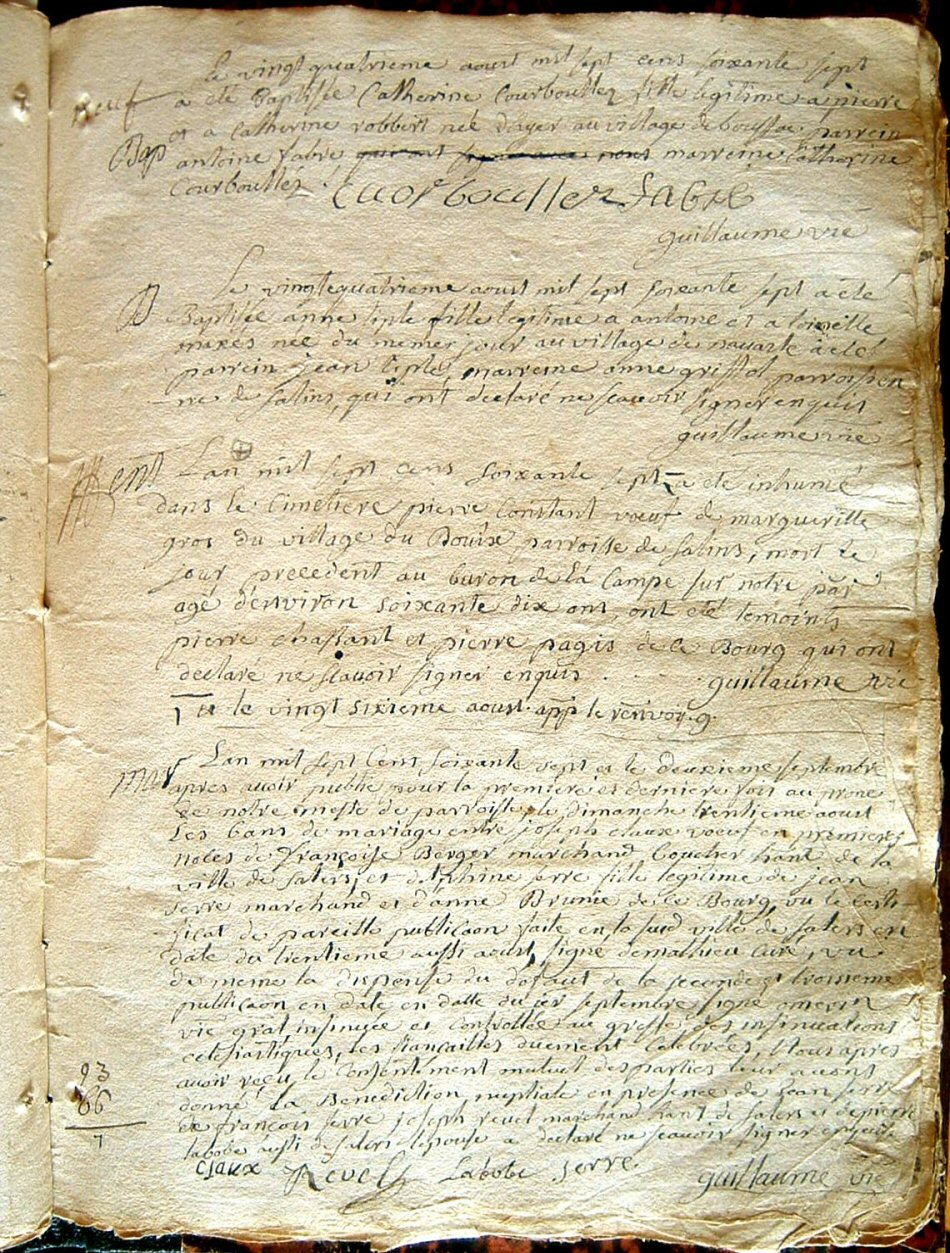 Le vingtquatrieme aoust mil sept cens soixante sept
a été Baptisée Catherine Courboulléz fille legitime a pierre
et a Catherine robbert née d'ayer au village de boussac parrein
Bap
antoine fabre marreine Catherine
Courboulléz
Cuorboullez fabre
guillaume vie
Le vingtequatrieme aoust mil sept soixante sept a été
B
Baptisée anne siple fille legitime a antoine et a
mazes née du memer jour au village de
parrein jean siple, marreine anne griffol parroissien
ne de salins, qui ont declaré ne scavoir signer enquis
guillaume vie
Lan mil sept cens soixante sept a été inhumé
dans le Cimetiere pierre Constant voeuf de margueritte
gros du village du Bouix parroisse de salins, mort le
jour precedent au buron de la Campe sur notre par
agé d'environ soixante dix ans, ont été temoints
pierre chassant et pierre pagis de ce Bourg qui ont
declaré ne scavoir signer enquis
guillaume vie
et le vingt sixieme aoust app le renvoy. g.
mar
Lan mil sept Cens soixante sept et le deuxieme septembre
apres avoir publié pour la premiere et derniere fois au prone
de notre messe de parroisse le dimanche trentieme aoust
Les bans de mariage entre joseph claux voeuf en premieres
noces de françoise Berger marchand Boucher hant de la
ville de salers, et delphine serre fille legitime de jean
serre marchand et d'anne Brunie de ce Bourg, vu le certi
ficat de pareille publicaon faite en la susd ville de salers en
date du trentieme aussi aoust, signé demathieu curé, vu
de meme la dispense du defaut de la seconde et troisieme
publicaon en date en datte du 1er septembre signé
vic grat insinuée et Controllée au greffe des insinuations
eclesiastiques, les fiançailles duement Celebrées, Nous apres
avoir reçu le Consentement mutuel des parties leur avons
donné La Benediction nuptiale en presence de jean serre
de françois serre joseph revel marchand hant de salers et de pierre
labobe aussi de salers lepouse a declaré ne scavoir signer enquise
93
86
7
Claux Revel Labobe serre
guillaume vie